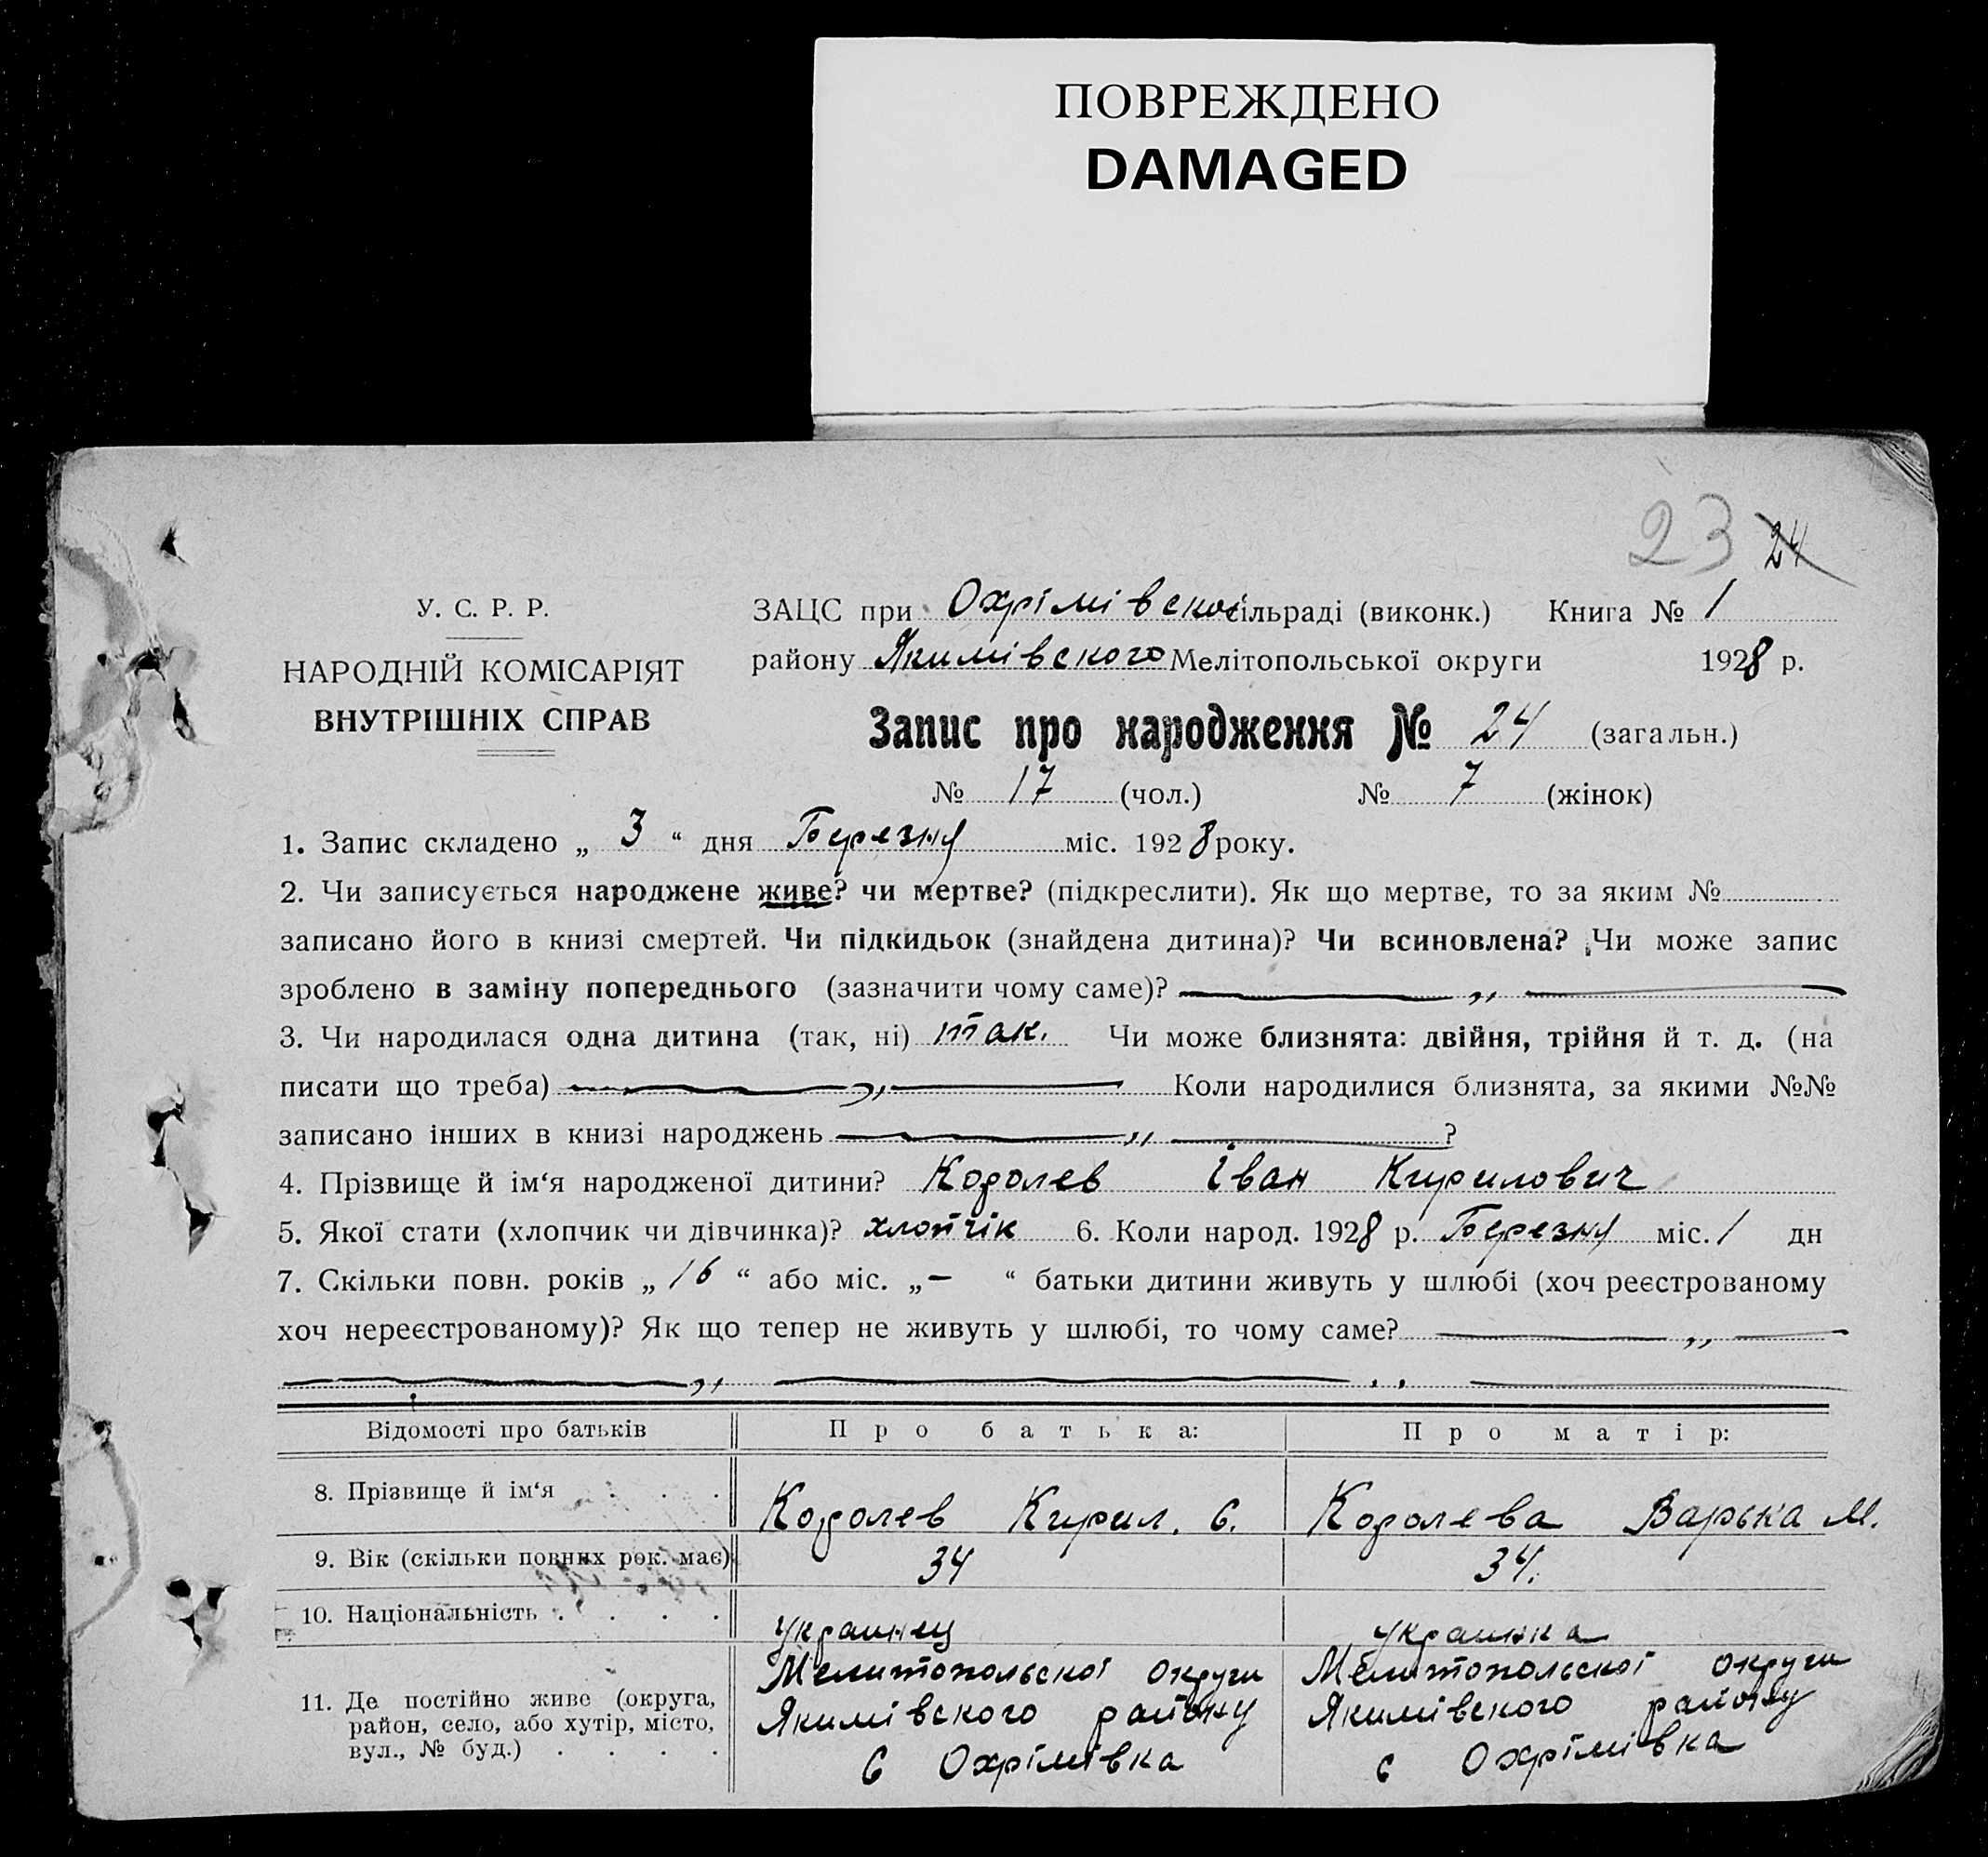 ПОВРЕЖДЕНО
DAMAGED
23 24
У. С. Р. Р.
НАРОДНІЙ КОМІСАРІЯТ
ВНУТРІШНІХ СПРАВ
ЗАЦС при Охрімівської сільраді (виконк.) Книга № 1
району Якимівського Мелітопольської округи 1928 р.
Запис про народження № 24 (загальн.)
№ 17 (чол.) № 7 (жінок)
1. Запис складено „ 3 “ дня Березня міс. 1928 року.
2. Чи записується народжене живе? чи мертве? (підкреслити). Як що мертве, то за яким №
записано його в книзі смертей. Чи підкидьок (знайдена дитина)? Чи всиновлена? Чи може запис
зроблено в заміну попереднього (зазначити чому саме)? — „ —
3. Чи народилася одна дитина (так, ні) так. Чи може близнята: двійня, трійня й т. д. (на
писати що треба) — „ — Коли народилися близнята, за якими №№
записано інших в книзі народжень — „ — ?
4. Прізвище й ім‘я народженої дитини? Королев Іван Кирилович
5. Якої стати (хлопчик чи дівчинка)? хлопчік 6. Коли народ. 1928 р. Березня міс. 1 дн
7. Скільки повн. років „ 16 “ або міс. „ — “ батьки дитини живуть у шлюбі (хоч реєстрованому
хоч нереєстрованому)? Як що тепер не живуть у шлюбі, то чому саме? — „ —
— „ — „ —
Відомості про батьків Про батька: Про матір:
8. Прізвище й ім‘я . . . Королев Кирил. С. Королева Варька М.
9. Вік (скільки повних рок. має) 34 34.
10. Національність . . . . Украинец Украинка
11. Де постійно живе (округа, район, село, або хутір, місто, вул., № буд.) . . . .
Мелитопольскоі Округи
Якимівского району
С Охрімівка
Мелитопольскоі Округи
Якимівского району
с Охрімівка